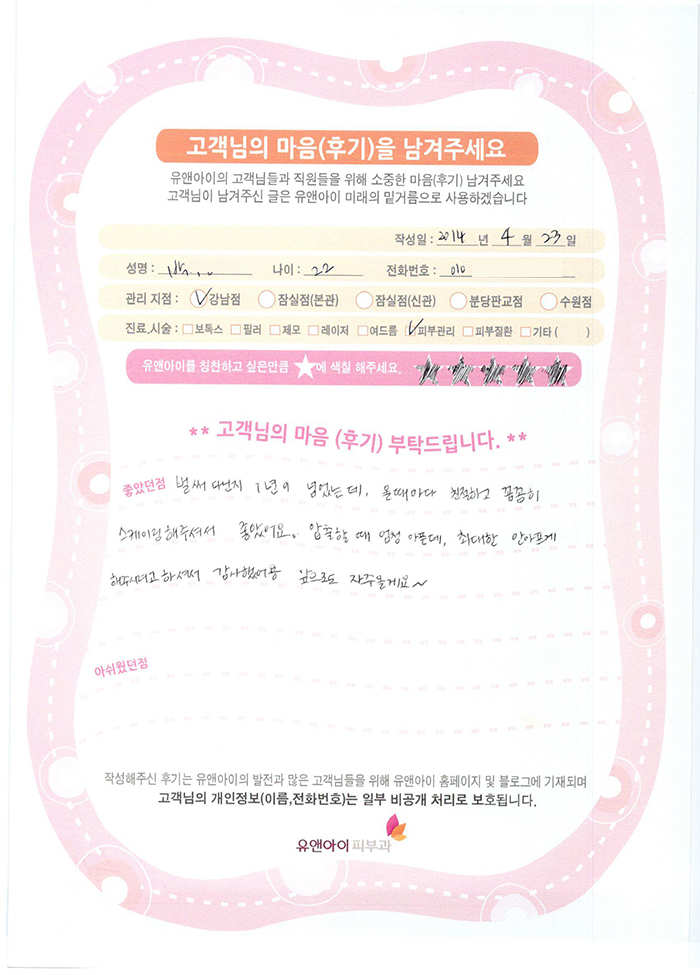 고객님의 마음(후기)을 남겨주세요
유앤아이의 고객님들과 직원들을 위해 소중한 마음(후기) 남겨주세요
고객님이 남겨주신 글은 유앤아이 미래의 밑거름으로 사용하겠습니다
작성일 : 2014 년 4 월 23 일
성명 : 나이 : 22 전화번호 : 010
관리 지점 : 강남점 잠실점(본관) 잠실점(신관) 분당판교점 수원점
진료,시술 : 보톡스 필러 제모 레이저 여드름 피부관리 피부질환 기타 ( )
유앤아이를 칭찬하고 싶은만큼 ★에 색칠 해주세요.
** 고객님의 마음 (후기) 부탁드립니다. **
좋았던점 벌써 다닌지 1년이 넘었는데, 올때마다 친절하고 꼼꼼히
스케일링해주셔서 좋았어요. 압출할 때 엄청 아픈데, 최대한 안아프게
해주시려고 하셔서 감사했어용 앞으로도 자주올게요~
아쉬웠던점
작성해주신 후기는 유앤아이의 발전과 많은 고객님들을 위해 유앤아이 홈페이지 및 블로그에 기재되며
고객님의 개인정보(이름,전화번호)는 일부 비공개 처리로 보호됩니다.
유앤아이 피부과